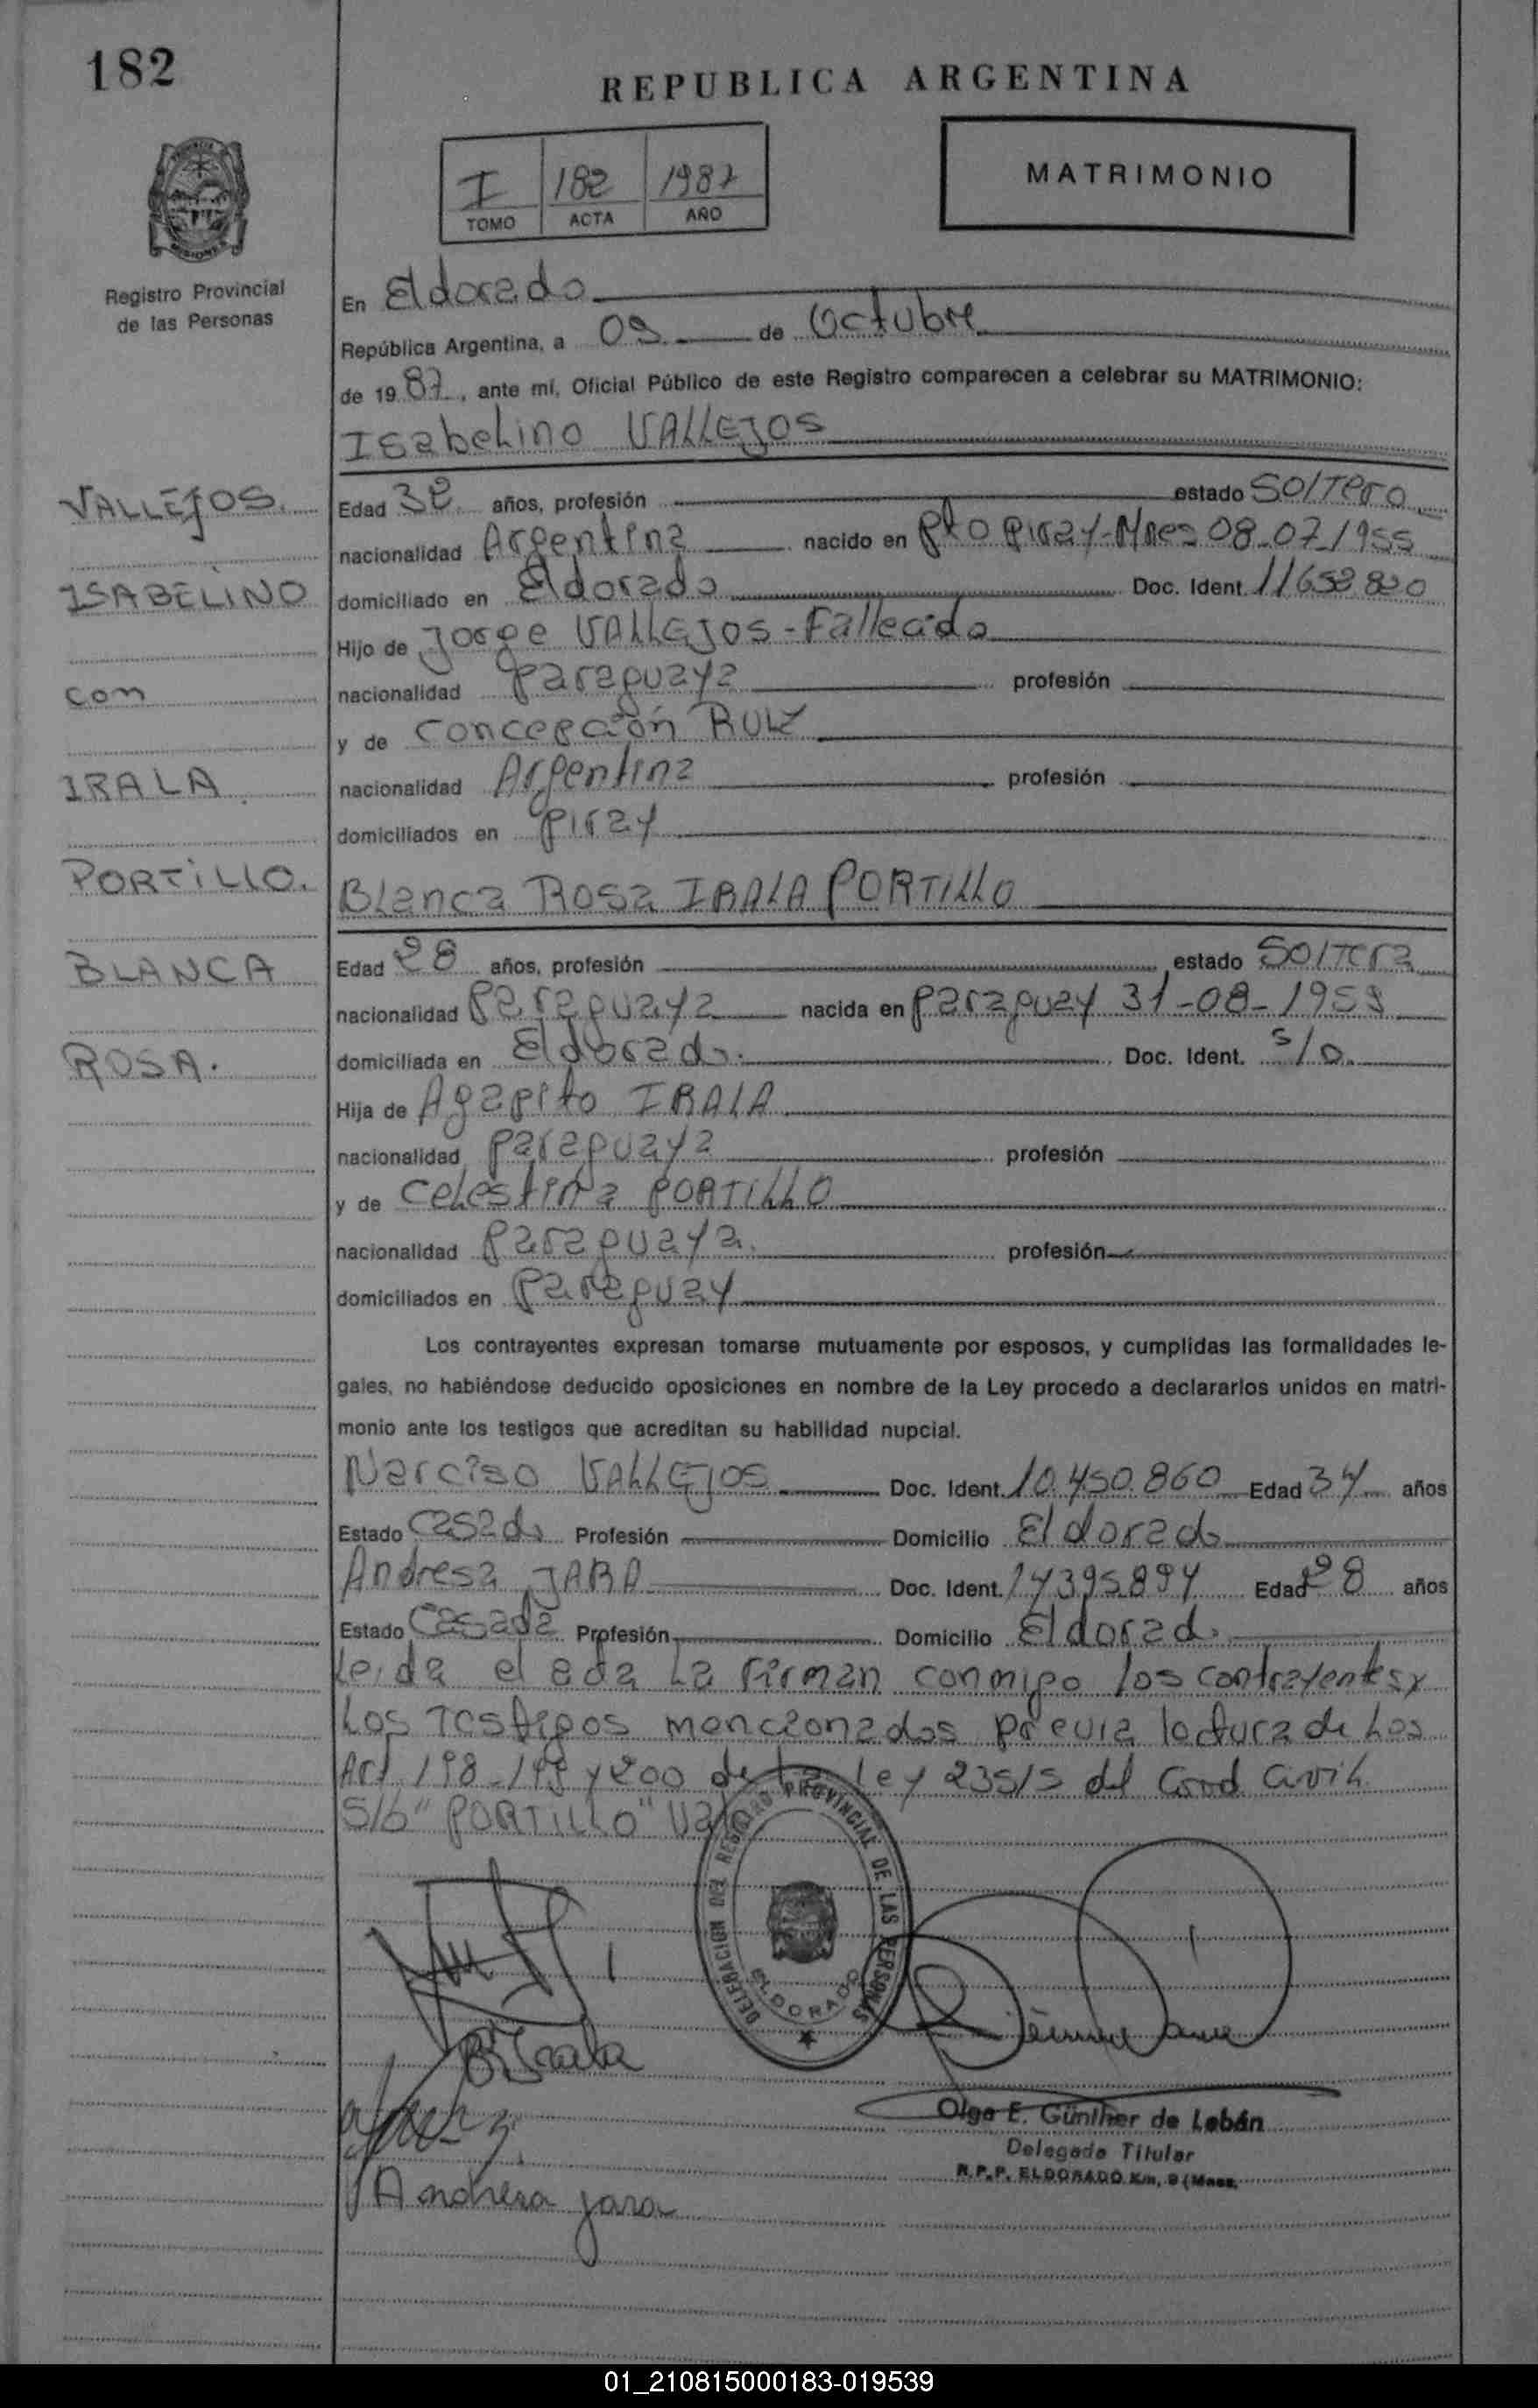 182
REPUBLICA ARGENTINA
I 182 1987
TOMO ACTA AÑO
MATRIMONIO
Registro Provincial
de las Personas
En Eldorado
República Argentina, a 09 de Octubre
de 1987, ante mí, Oficial Público de este Registro comparecen a celebrar su MATRIMONIO:
Isabelino VALLEJOS
VALLEJOS.
ISABELINO
con
IRALA
PORTILLO.
BLANCA
ROSA.
Edad 32 años, profesión estado Soltero
nacionalidad Argentina nacido en Pto Piray-Mnes 08-07-1955
domiciliado en Eldorado Doc. Ident. 11658820
Hijo de Jorge VALLEJOS - Fallecido
nacionalidad Paraguaya profesión
y de Concepción RUIZ
nacionalidad Argentina profesión
domiciliados en Piray
Blanca Rosa IRALA PORTILLO
Edad 28 años, profesión estado Soltera
nacionalidad Paraguaya nacida en Paraguay 31-08-1959
domiciliada en Eldorado. Doc. Ident. s/o.
Hija de Agapito IRALA
nacionalidad Paraguaya profesión
y de Celestina PORTILLO
nacionalidad Paraguaya. profesión
domiciliados en Paraguay
Los contrayentes expresan tomarse mutuamente por esposos, y cumplidas las formalidades le-
gales, no habiéndose deducido oposiciones en nombre de la Ley procedo a declararlos unidos en matri-
monio ante los testigos que acreditan su habilidad nupcial.
Narciso VALLEJOS Doc. Ident. 10.450.860 Edad 34 años
Estado Casado Profesión Domicilio Eldorado
Andresa JARA Doc. Ident. 14395894 Edad 28 años
Estado Casada Profesión Domicilio Eldorado
Leida el acta La Firman conmigo los contrayentes y
Los Testigos mencionados previa lectura de Los
Art 198-199 y 200 de la Ley 23515 del Cod Civil
S/b "PORTILLO" Vale
DELEGACION DEL REGISTRO PROVINCIAL DE LAS PERSONAS
ELDORADO
B Irala
Andresa Jara
Olga E. Günther de Lebán
Delegada Titular
R.P.P. ELDORADO Km. 9 (Mnes.
01_210815000183-019539